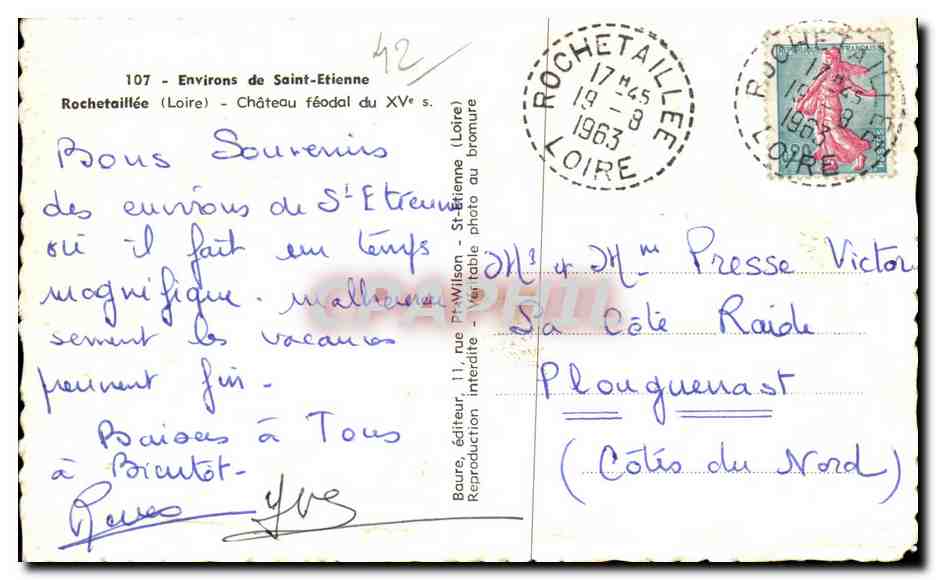 42
107 - Environs de Saint-Etienne
Rochetaillée (Loire) - Château féodal du XVe s.
Bons Souvenirs
des environs de St Etienne
où il fait un temps
magnifique. malheureu
sement les vacances
prennent fin -
Baisers à Tous
à Bientôt -
Yves
Baure, éditeur, 11, rue Pt-Wilson - St-Etienne (Loire)
Reproduction interdite - Véritable photo au bromure
CPAPHIL
ROCHETAILLEE
17 H -45
19 - 8
1963
LOIRE
ROCHETAILLEE
17 H -45
19 - 8
1963
LOIRE
FRANÇAISE
0,20
Mr & Mme Presse Victor
La Côte Raide
Plouguenast
(Côtes du Nord)